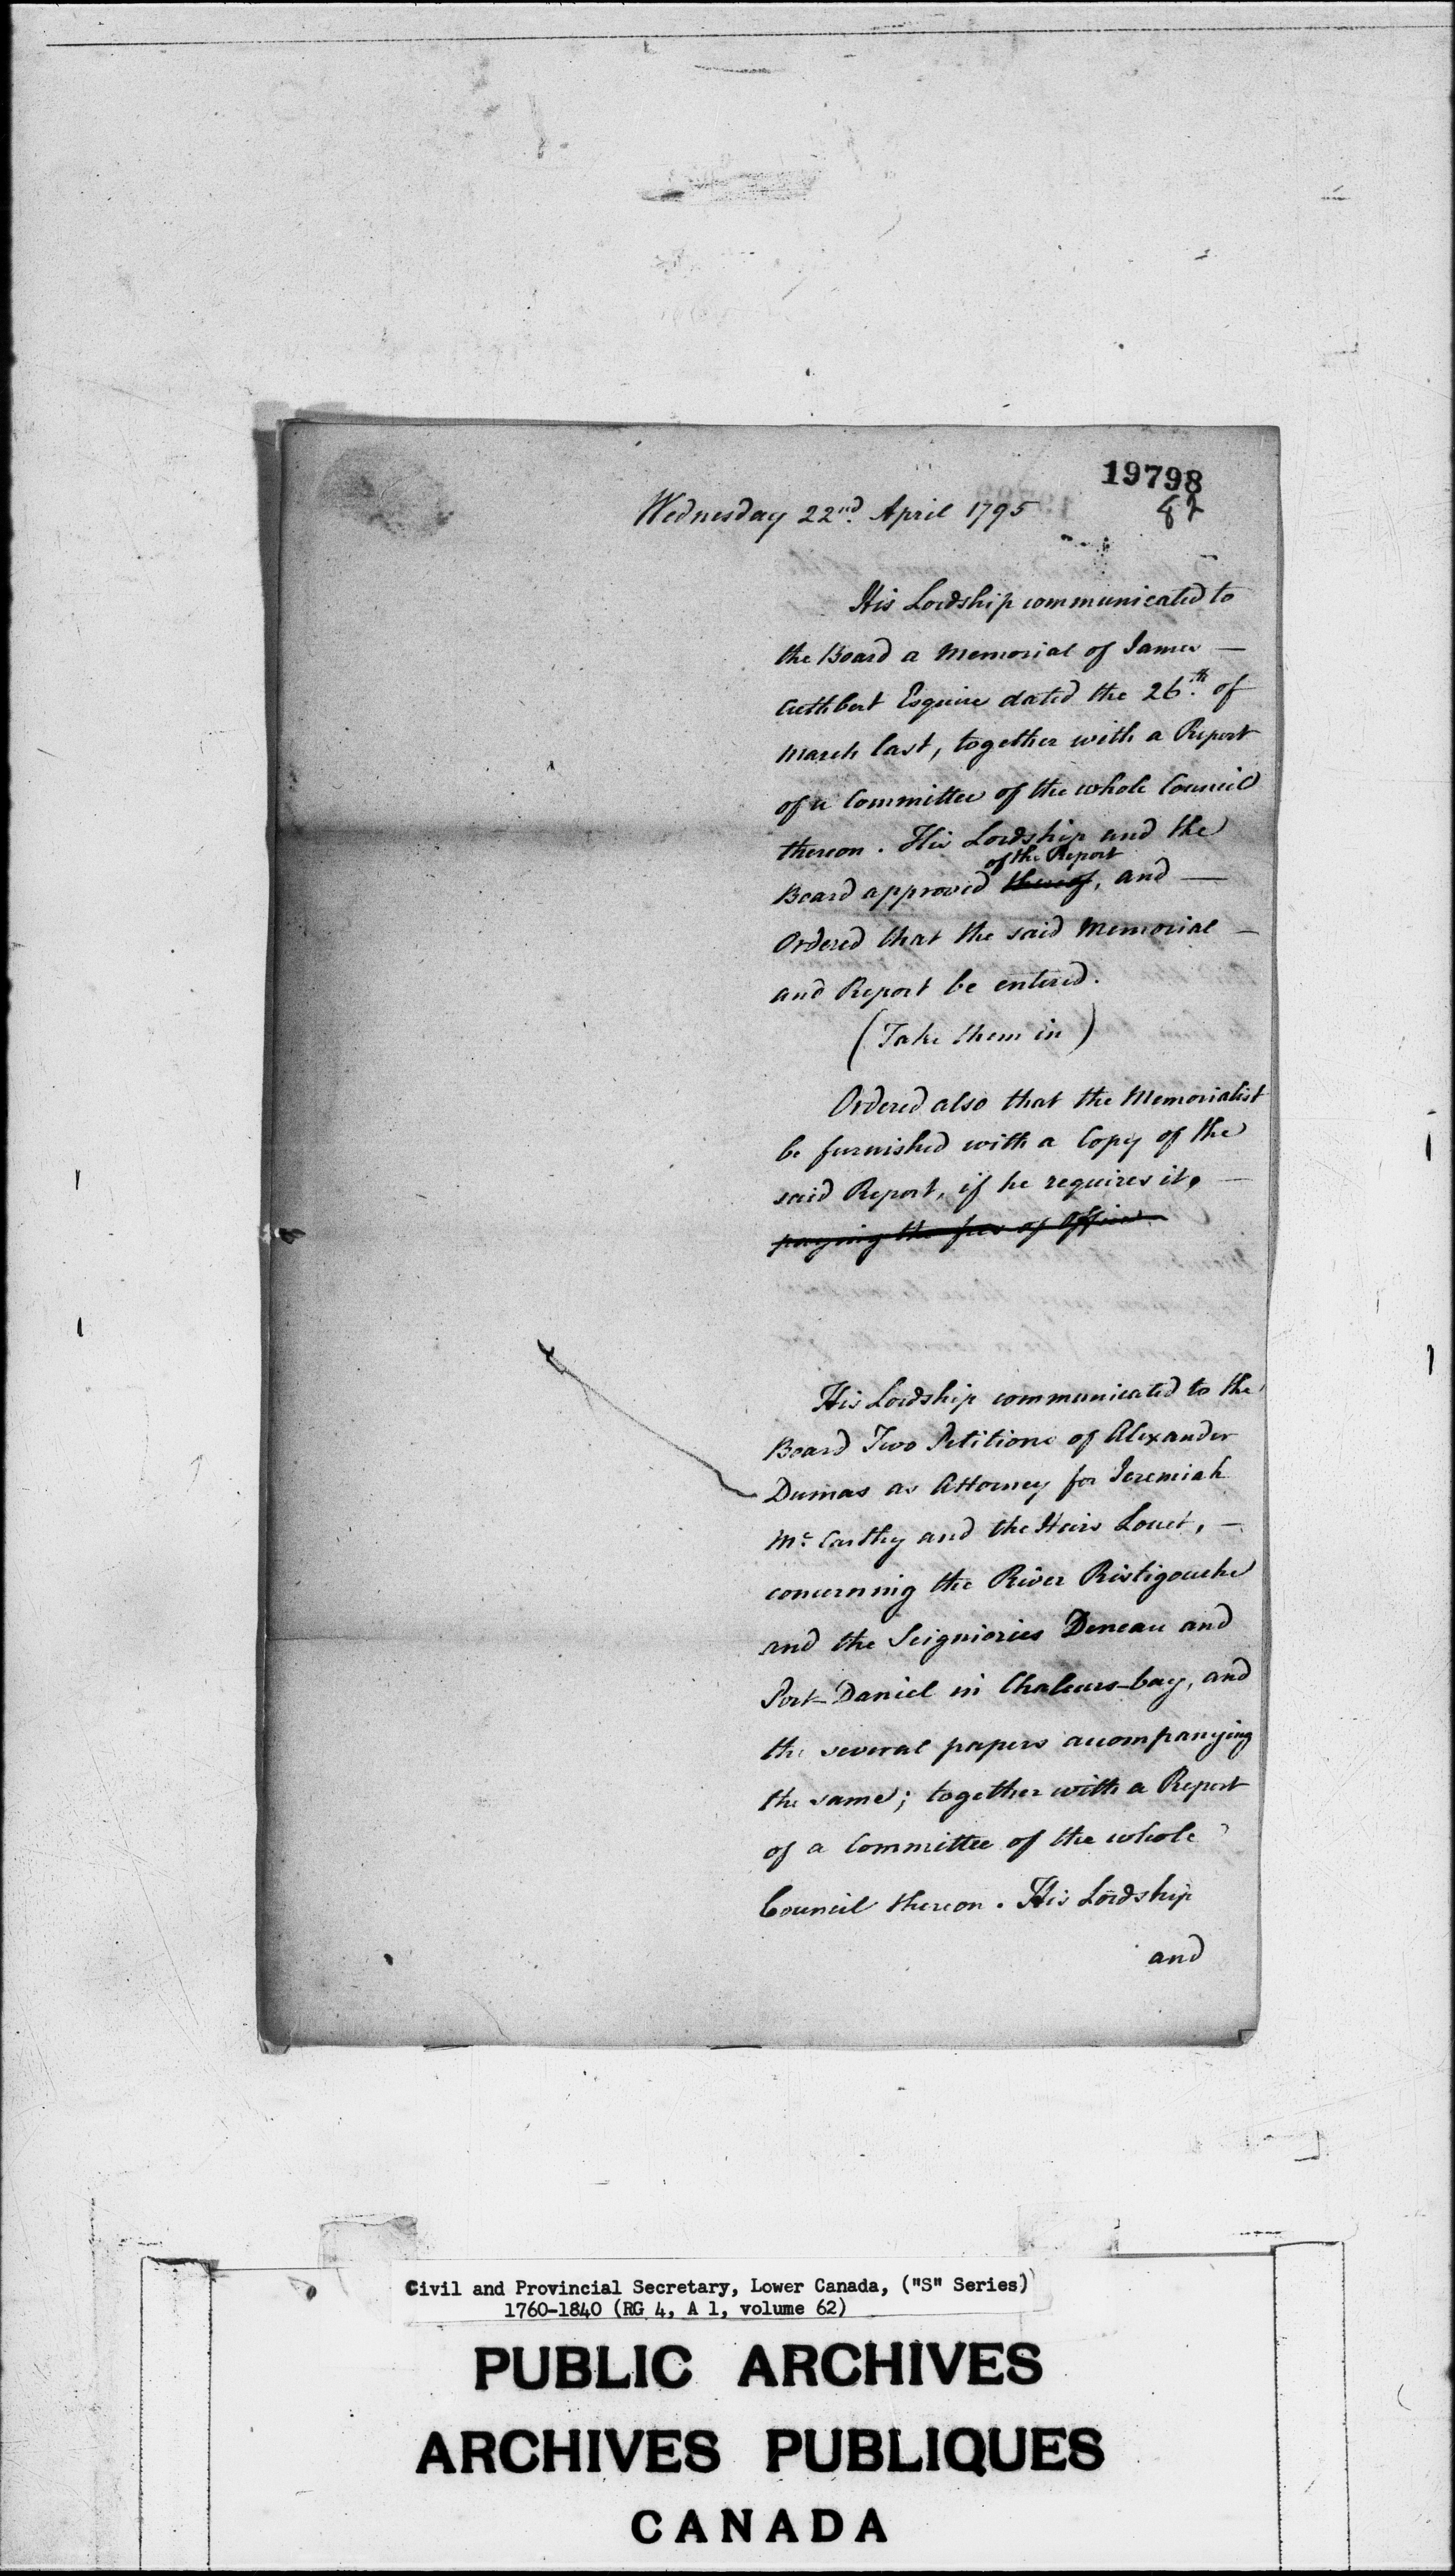 19798
82
Wednesday 22nd. April 1795
His Lordship communicated to
the Board a Memorial of James —
Cuthbert Esquire dated the 26.th of
March last, together with a Report
of a Committee of the whole Council
thereon. His Lordship and the
of the Report
Board approved thereof, and —
Ordered that the said Memorial —
and Report be entered.
(Take them in)
Ordered also that the Memorialist
be furnished with a Copy of the
said Report, if he requires it, —
paying the fees of Office.
His Lordship communicated to the
Board Two Petitions of Alexander
Dumas as Attorney for Jeremiah
Mc Carthy and the Heirs Louet, —
concerning the River Ristigouche
and the Seigniories Deneau and
Port-Daniel in Chaleurs-bay, and
the several papers accompanying
the same; together with a Report
of a Committee of the whole
Council thereon. His Lordship
and
Civil and Provincial Secretary, Lower Canada, ("S" Series)
1760-1840 (RG 4, A 1, volume 62)
PUBLIC ARCHIVES
ARCHIVES PUBLIQUES
CANADA